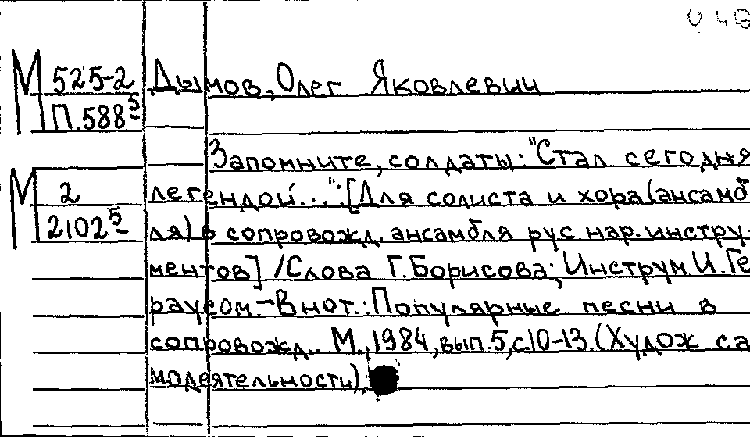 М 525-2 Дымов, Олег Яковлевич
П.588⁵
Запомните, солдаты: "Стал сегодня
М 2 легендой...": [Для солиста и хора (ансамб
2102⁵ ля) в сопровожд. ансамбля рус нар. инстру-
ментов] / Слова Г. Борисова; Инструм. И. Ге
раусом.-В нот.: Популярные песни в
сопровожд.. М., 1984, вып. 5, с10-13. (Худож са
модеятельности),